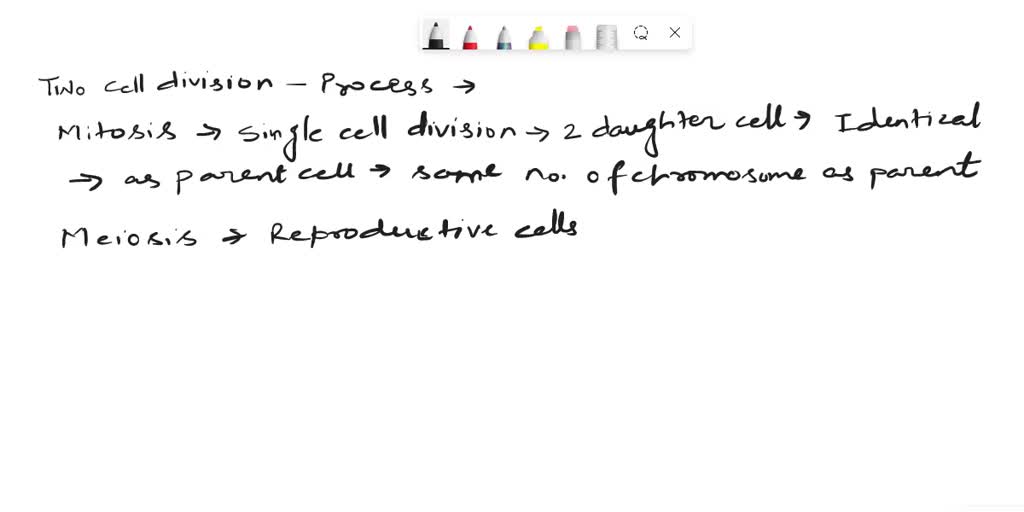 Two cell division – Process →
Mitosis → single cell division → 2 daughter cell → Identical
→ as parent cell → same no. of chromosome as parent
Meiosis → Reproductive cells